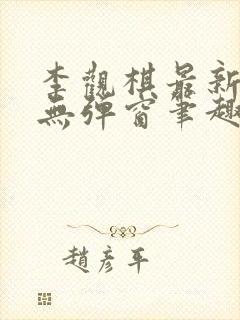 李觀棋最新
無彈窗筆趣
趙彥平